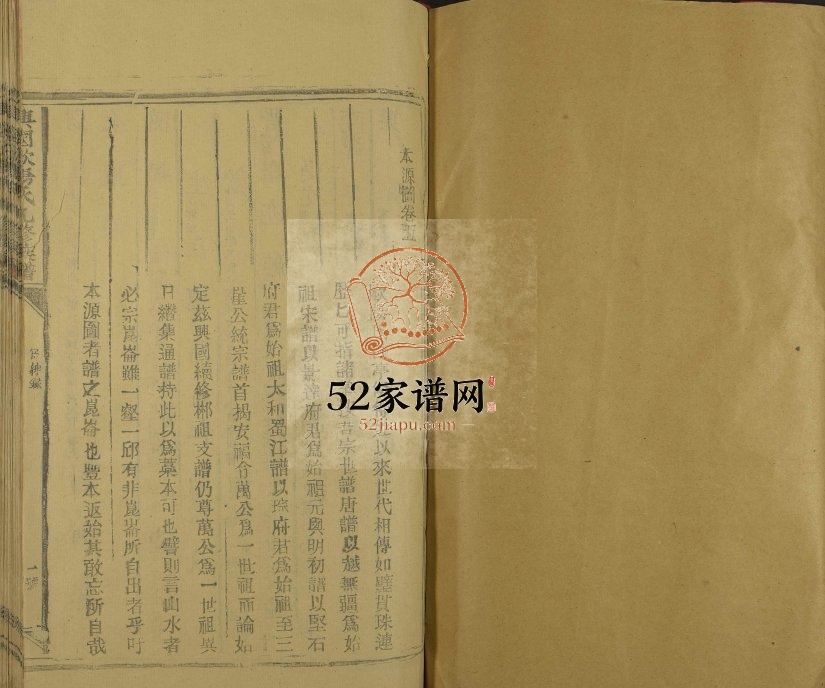 本源圖卷五
以來世代相傳如璧貫珠連
宗世譜唐譜以越無疆爲始
祖宋譜以 府君爲始祖元與明初譜以堅石
府君爲始祖太和蜀江譜以琮府君爲始祖至三
星公統宗譜首揭安福令萬公爲一世祖而論如
定玆興國續修郴祖支譜仍尊萬公爲一世祖異
日續集通譜持此以爲藁本可也譬則言山水者
必宗崑崙雖一壑一邱有非崑崙所自出者乎时
本源圖者譜之崑崙也豐本返始其敢忘所自哉
52家谱网
52jiapu.com